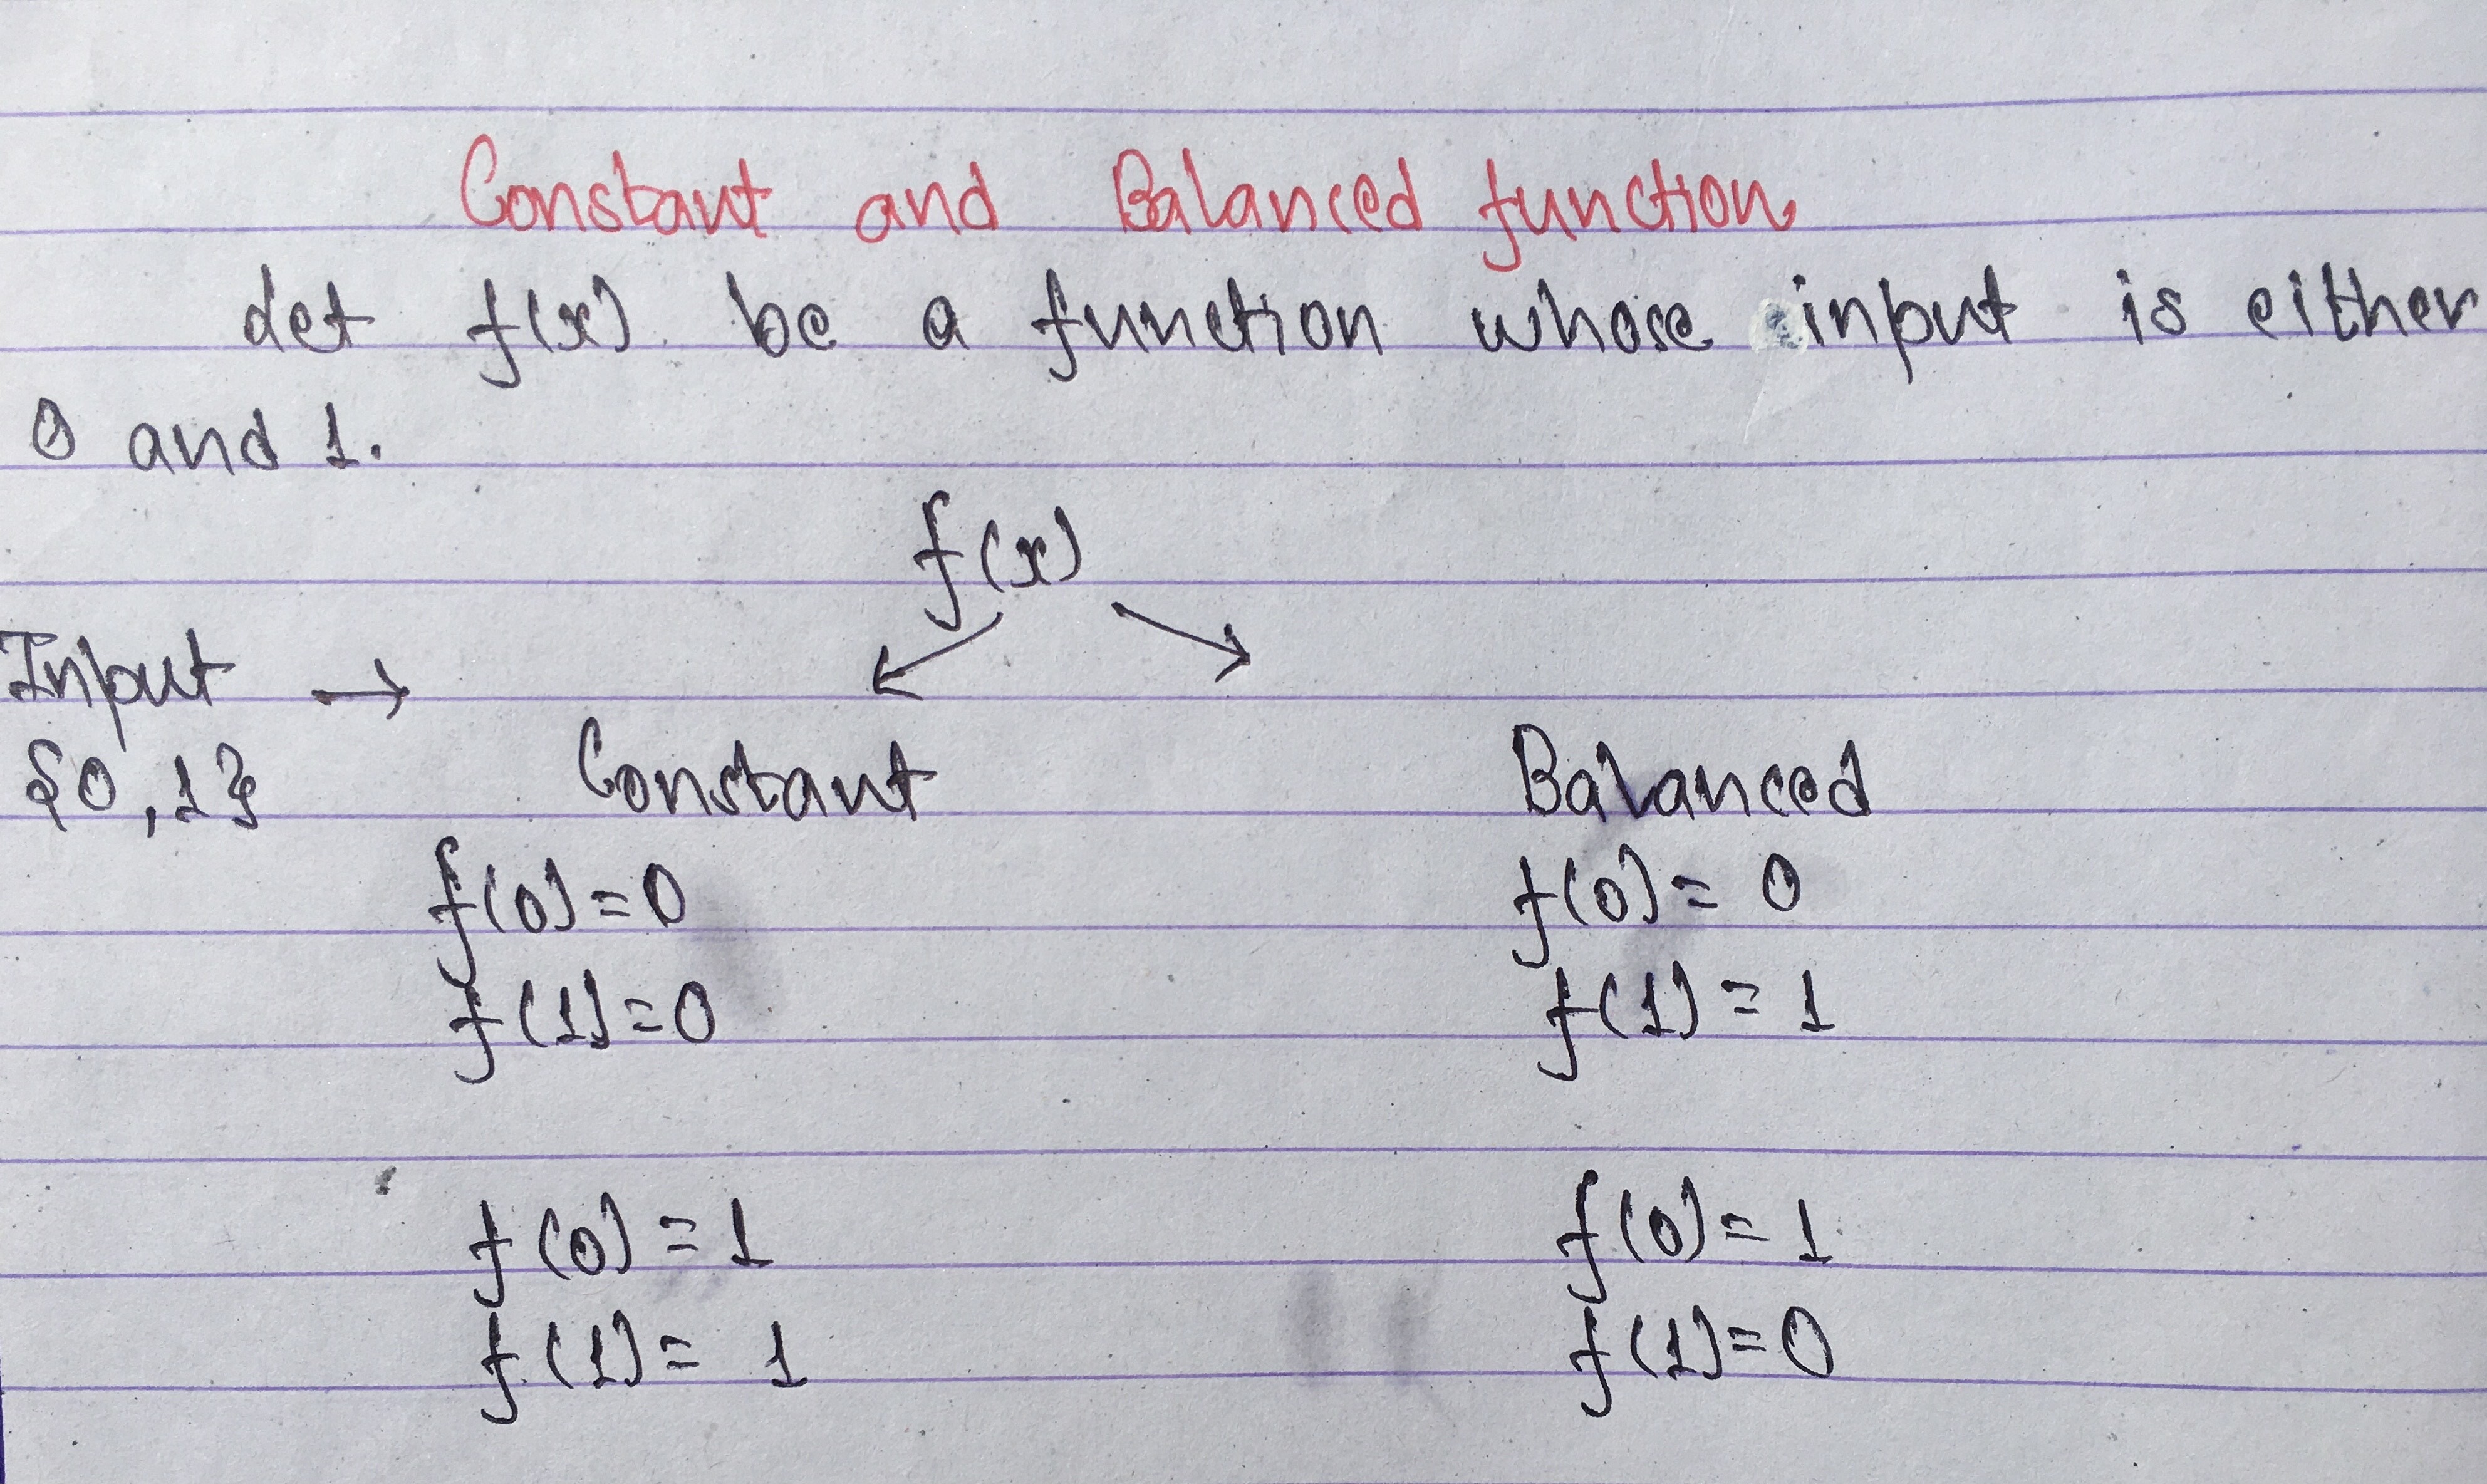 Constant and Balanced function
Let f(x) be a function whose input is either
0 and 1.
f(x)
Input →
{0,1} Constant Balanced
f(0)=0 f(0)= 0
f(1)=0 f(1)= 1
f(0)=1 f(0)= 1
f(1)= 1 f(1)=0